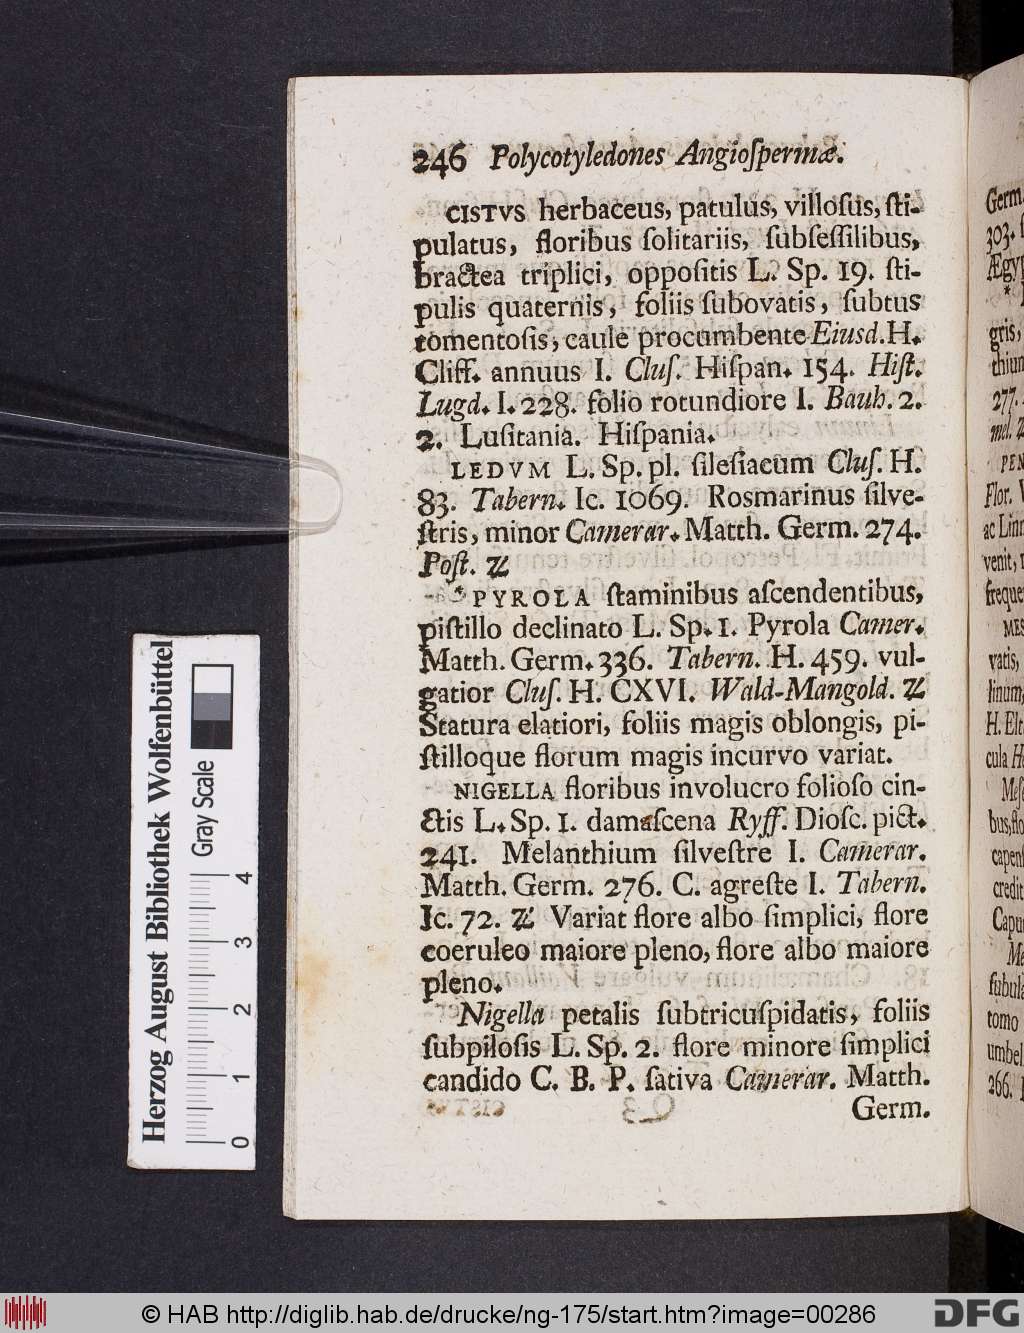 246 Polycotyledones Angioſpermæ.
CISTVS herbaceus, patulus, villoſus, ſti-
pulatus, floribus ſolitariis, ſubſeſſilibus,
bractea triplici, oppoſitis L. Sp. 19. ſti-
pulis quaternis, foliis ſubovatis, ſubtus
tomentoſis, caule procumbente Eiusd. H.
Cliff. annuus I. Cluſ. Hiſpan. 154. Hiſt.
Lugd. I. 228. folio rotundiore I. Bauh. 2.
2. Luſitania. Hiſpania.
LEDVM L. Sp. pl. ſileſiacum Cluſ. H.
83. Tabern. Ic. 1069. Rosmarinus ſilve-
ſtris, minor Camerar. Matth. Germ. 274.
Poſt. ♃
* PYROLA ſtaminibus aſcendentibus,
piſtillo declinato L. Sp. 1. Pyrola Camer.
Matth. Germ. 336. Tabern. H. 459. vul-
gatior Cluſ. H. CXVI. Wald-Mangold. ♃
Statura elatiori, foliis magis oblongis, pi-
ſtilloque florum magis incurvo variat.
NIGELLA floribus involucro folioſo cin-
ctis L. Sp. 1. damaſcena Ryff. Dioſc. pict.
241. Melanthium ſilveſtre I. Camerar.
Matth. Germ. 276. C. agreſte I. Tabern.
Ic. 72. ♃ Variat flore albo ſimplici, flore
coeruleo maiore pleno, flore albo maiore
pleno.
Nigella petalis ſubtricuſpidatis, foliis
ſubpiloſis L. Sp. 2. flore minore ſimplici
candido C. B. P. ſativa Camerar. Matth.
Germ.
Germ.
303.
Ægyp
*
gris,
thium
277.
mel.
PEN
Flor.
ac Linn
venit,
freque
MES
vatis,
linum,
H. Elt
cula
Meſ
bus, flo
capenſ
credit
Capu
Me
ſubula
tomo
umbel
266.
Herzog August Bibliothek Wolfenbüttel
Gray Scale
0 1 2 3 4
© HAB http://diglib.hab.de/drucke/ng-175/start.htm?image=00286
DFG